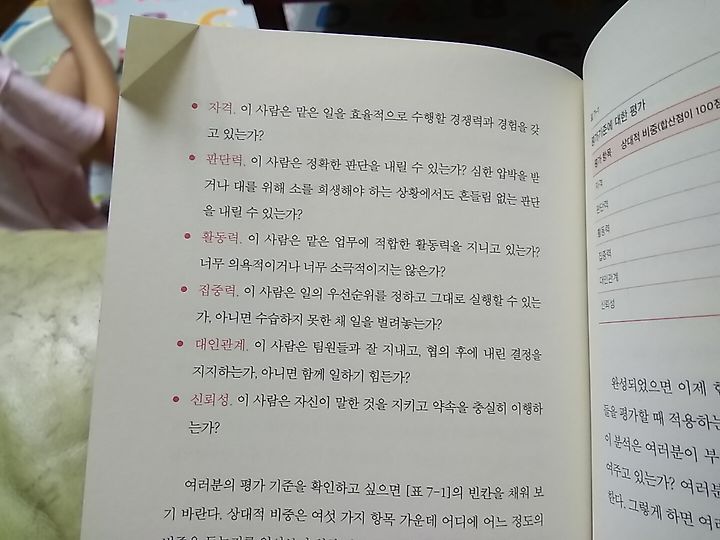 • 자격. 이 사람은 맡은 일을 효율적으로 수행할 경쟁력과 경험을 갖
고 있는가?
• 판단력. 이 사람은 정확한 판단을 내릴 수 있는가? 심한 압박을 받
거나 대를 위해 소를 희생해야 하는 상황에서도 흔들림 없는 판단
을 내릴 수 있는가?
• 활동력. 이 사람은 맡은 업무에 적합한 활동력을 지니고 있는가?
너무 의욕적이거나 너무 소극적이지는 않은가?
• 집중력. 이 사람은 일의 우선순위를 정하고 그대로 실행할 수 있는
가, 아니면 수습하지 못한 채 일을 벌려놓는가?
• 대인관계. 이 사람은 팀원들과 잘 지내고, 협의 후에 내린 결정을
지지하는가, 아니면 함께 일하기 힘든가?
• 신뢰성. 이 사람은 자신이 말한 것을 지키고 약속을 충실히 이행하
는가?
여러분의 평가 기준을 확인하고 싶으면 [표 7-1]의 빈칸을 채워 보
기 바란다. 상대적 비중은 여섯 가지 항목 가운데 어디에 어느 정도의
평가기준에 대한 평가
평가 항목 상대적 비중(합산점이 100점
자격
판단력
활동력
집중력
대인관계
신뢰성
완성되었으면 이제
들을 평가할 때 적용하는
이 분석은 여러분이 부
여주고 있는가? 여러분
한다. 그렇게 하면 여러